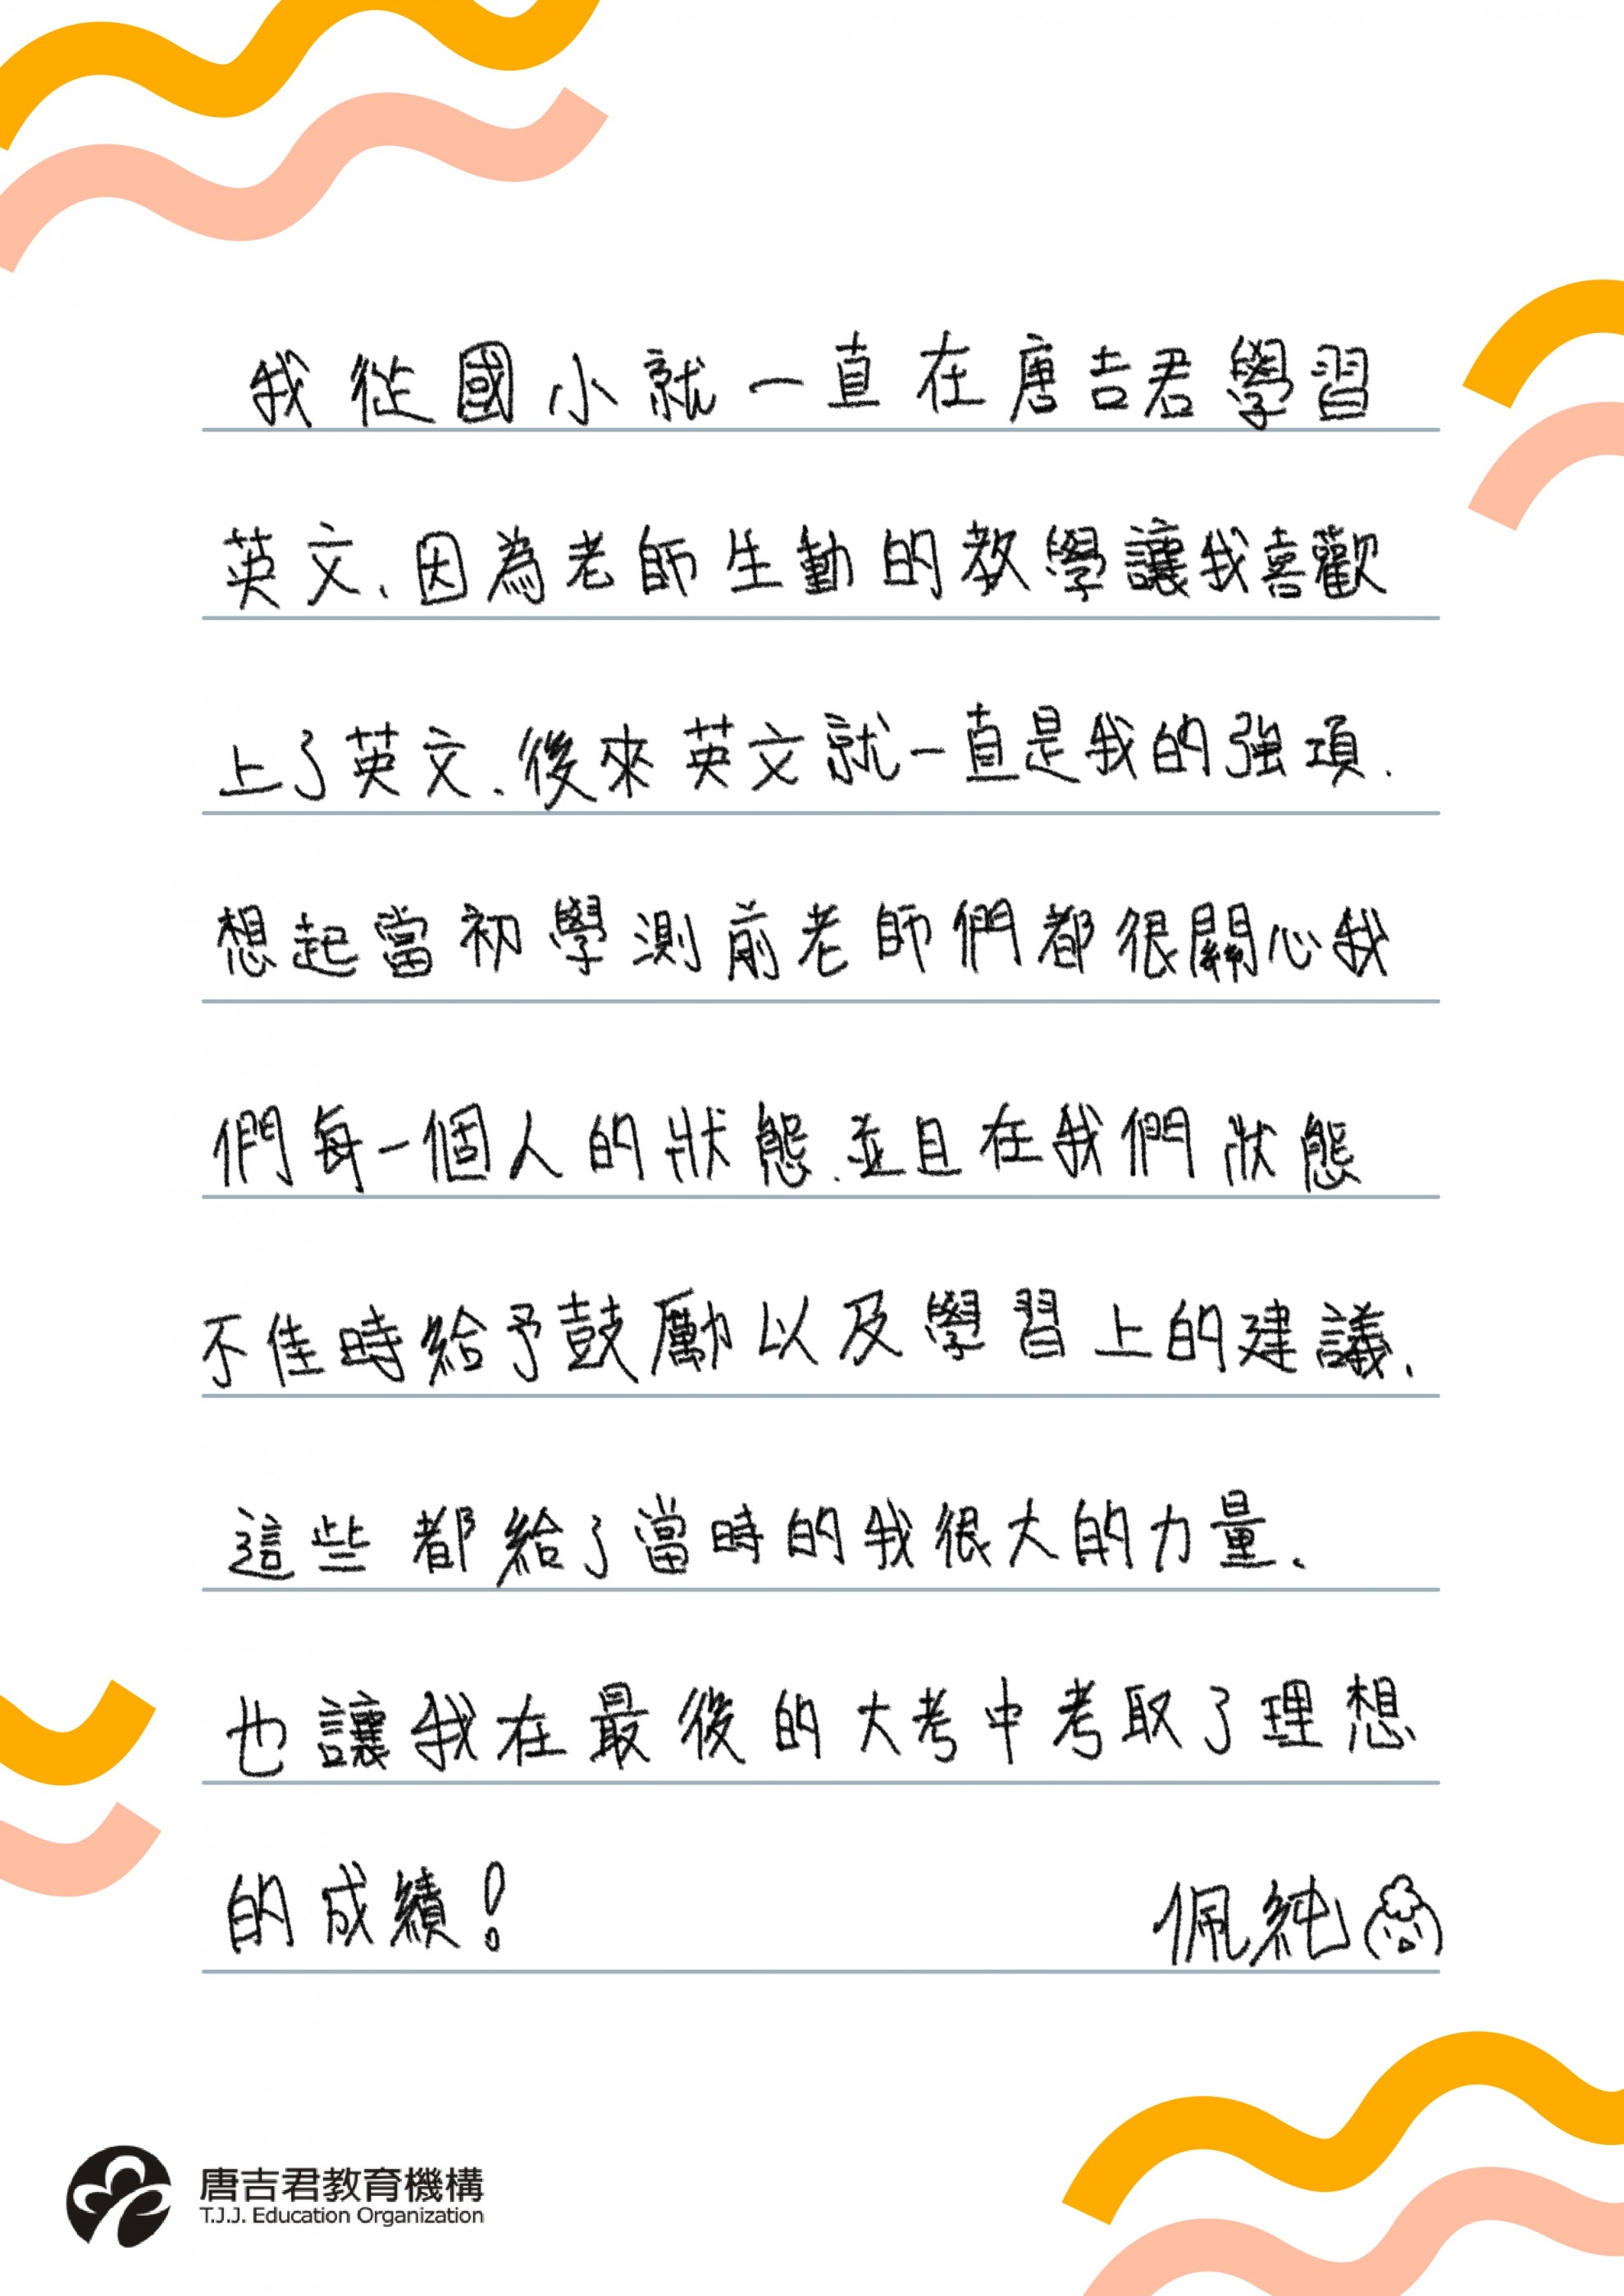 我從國小就一直在唐吉君學習
英文、因為老師生動的教學讓我喜歡
上了英文、後來英文就一直是我的強項、
想起當初學測前老師們都很關心我
們每一個人的狀態、並且在我們狀態
不佳時給予鼓勵以及學習上的建議、
這些都給了當時的我很大的力量、
也讓我在最後的大考中考取了理想
的成績！ 佩純
唐吉君教育機構
T.J.J. Education Organization